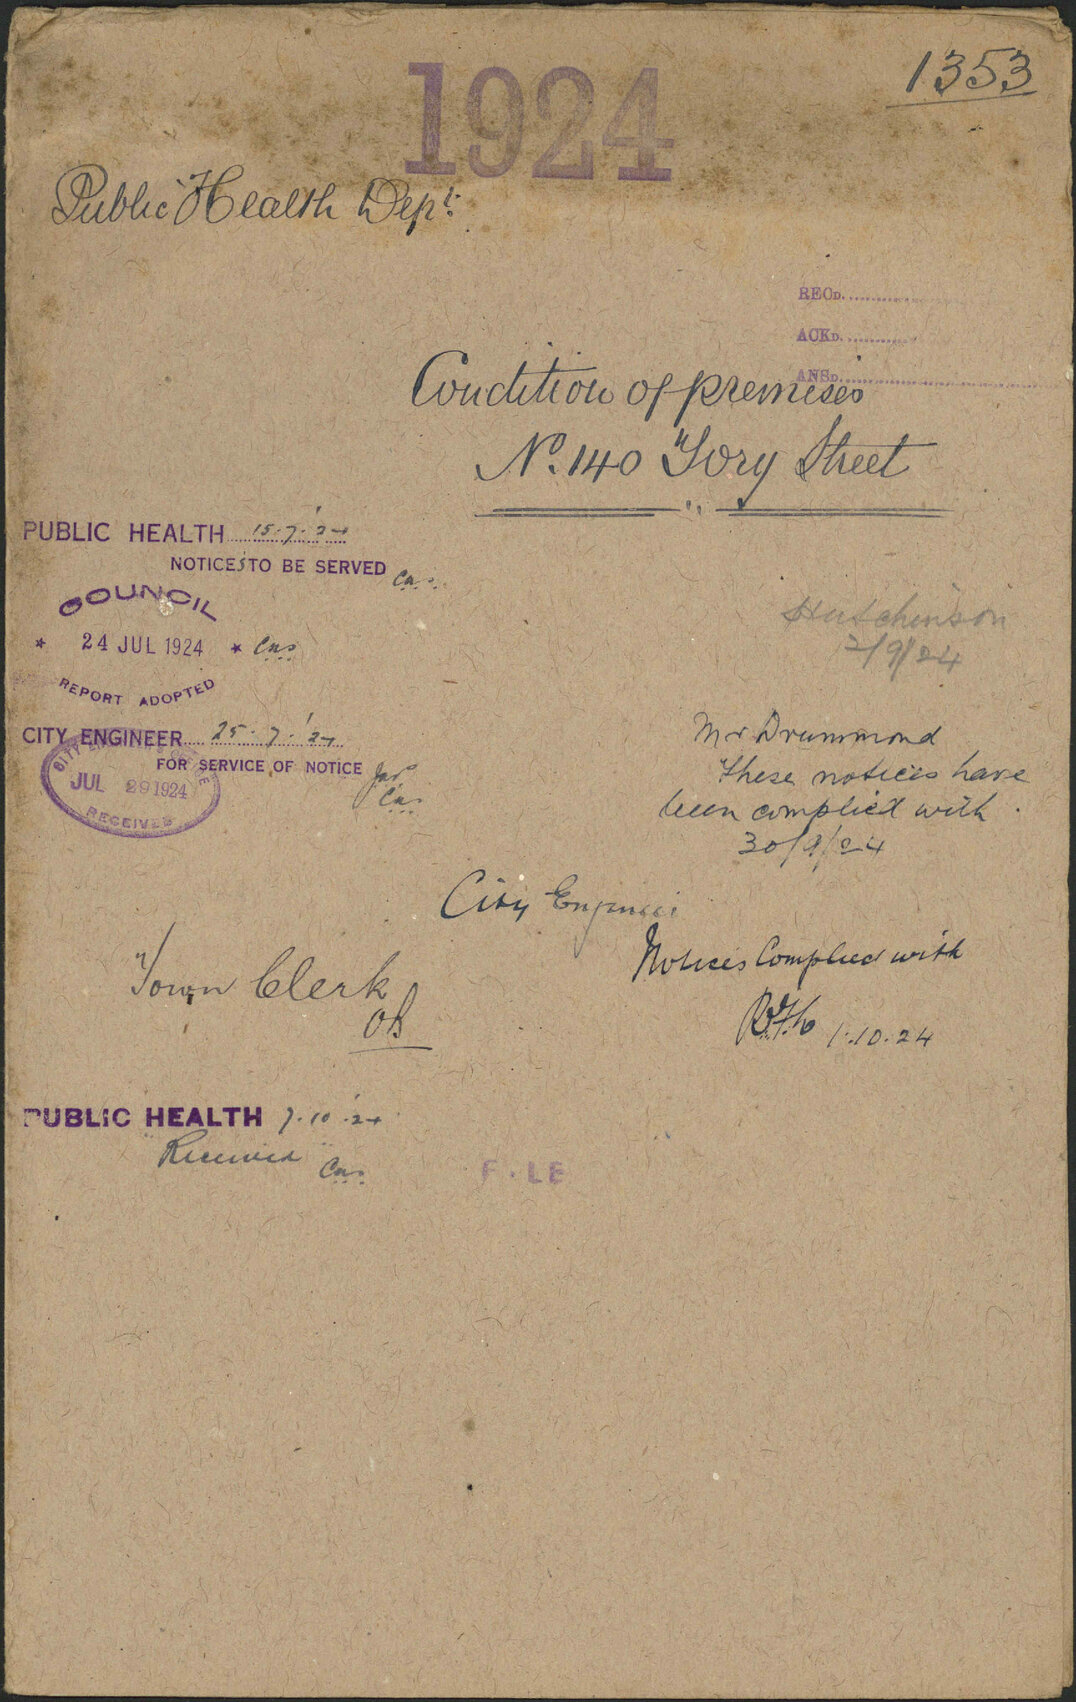 1353
1924
Public Health Dept:
RECD.
ACKD.
ANSD.
Condition of premises
No. 140 Tory Street
PUBLIC HEALTH 15.7.'24
NOTICES TO BE SERVED
COUNCIL
24 JUL 1924
REPORT ADOPTED
Hutchinson
2/9/24
CITY ENGINEER 25.7.'24
FOR SERVICE OF NOTICE
CITY ENGINEER'S OFFICE
JUL 29 1924
RECEIVED
Mr Drummond
These notices have
been complied with.
30/9/24
City Engineer
Notices Complied with
1.10.24
Town Clerk
PUBLIC HEALTH 7.10.'24
"Received"
F.LE